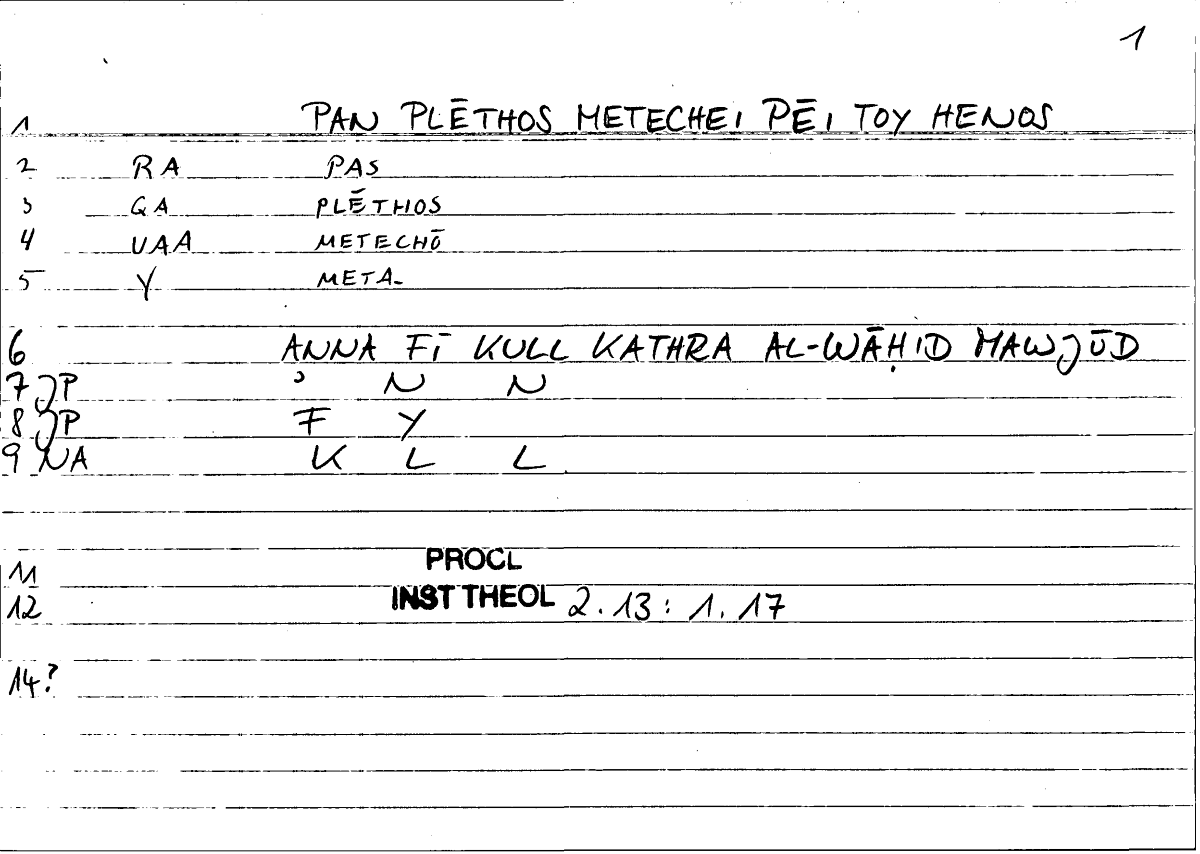 1
1 PAN PLĒTHOS METECHEI PĒI TOY HENOS
2 RA PAS
3 GA PLĒTHOS
4 UAA METECHŌ
5 Y META-
6 ANNA FĪ KULL KATHRA AL-WĀḤID MAWJŪD
7 JP ʾ N N
8 JP F Y
9 NA K L L
11 PROCL
12 INST THEOL 2.13 : 1.17
14?